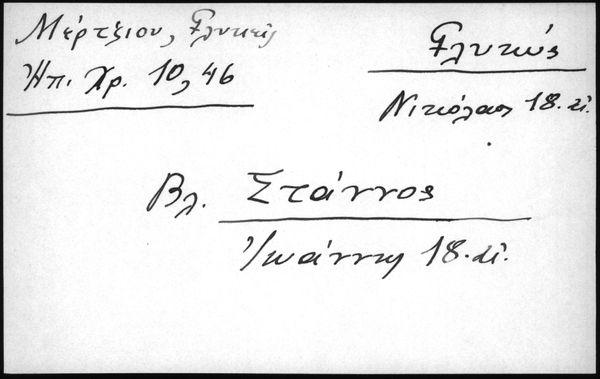 Μέρτζιου, Γλυκεῖς
Ἠπ. Χρ. 10, 46
Γλυκύς
Νικόλαος 18. αἰ.
Βλ. Στάννος
Ἰωάννης 18. αἰ.